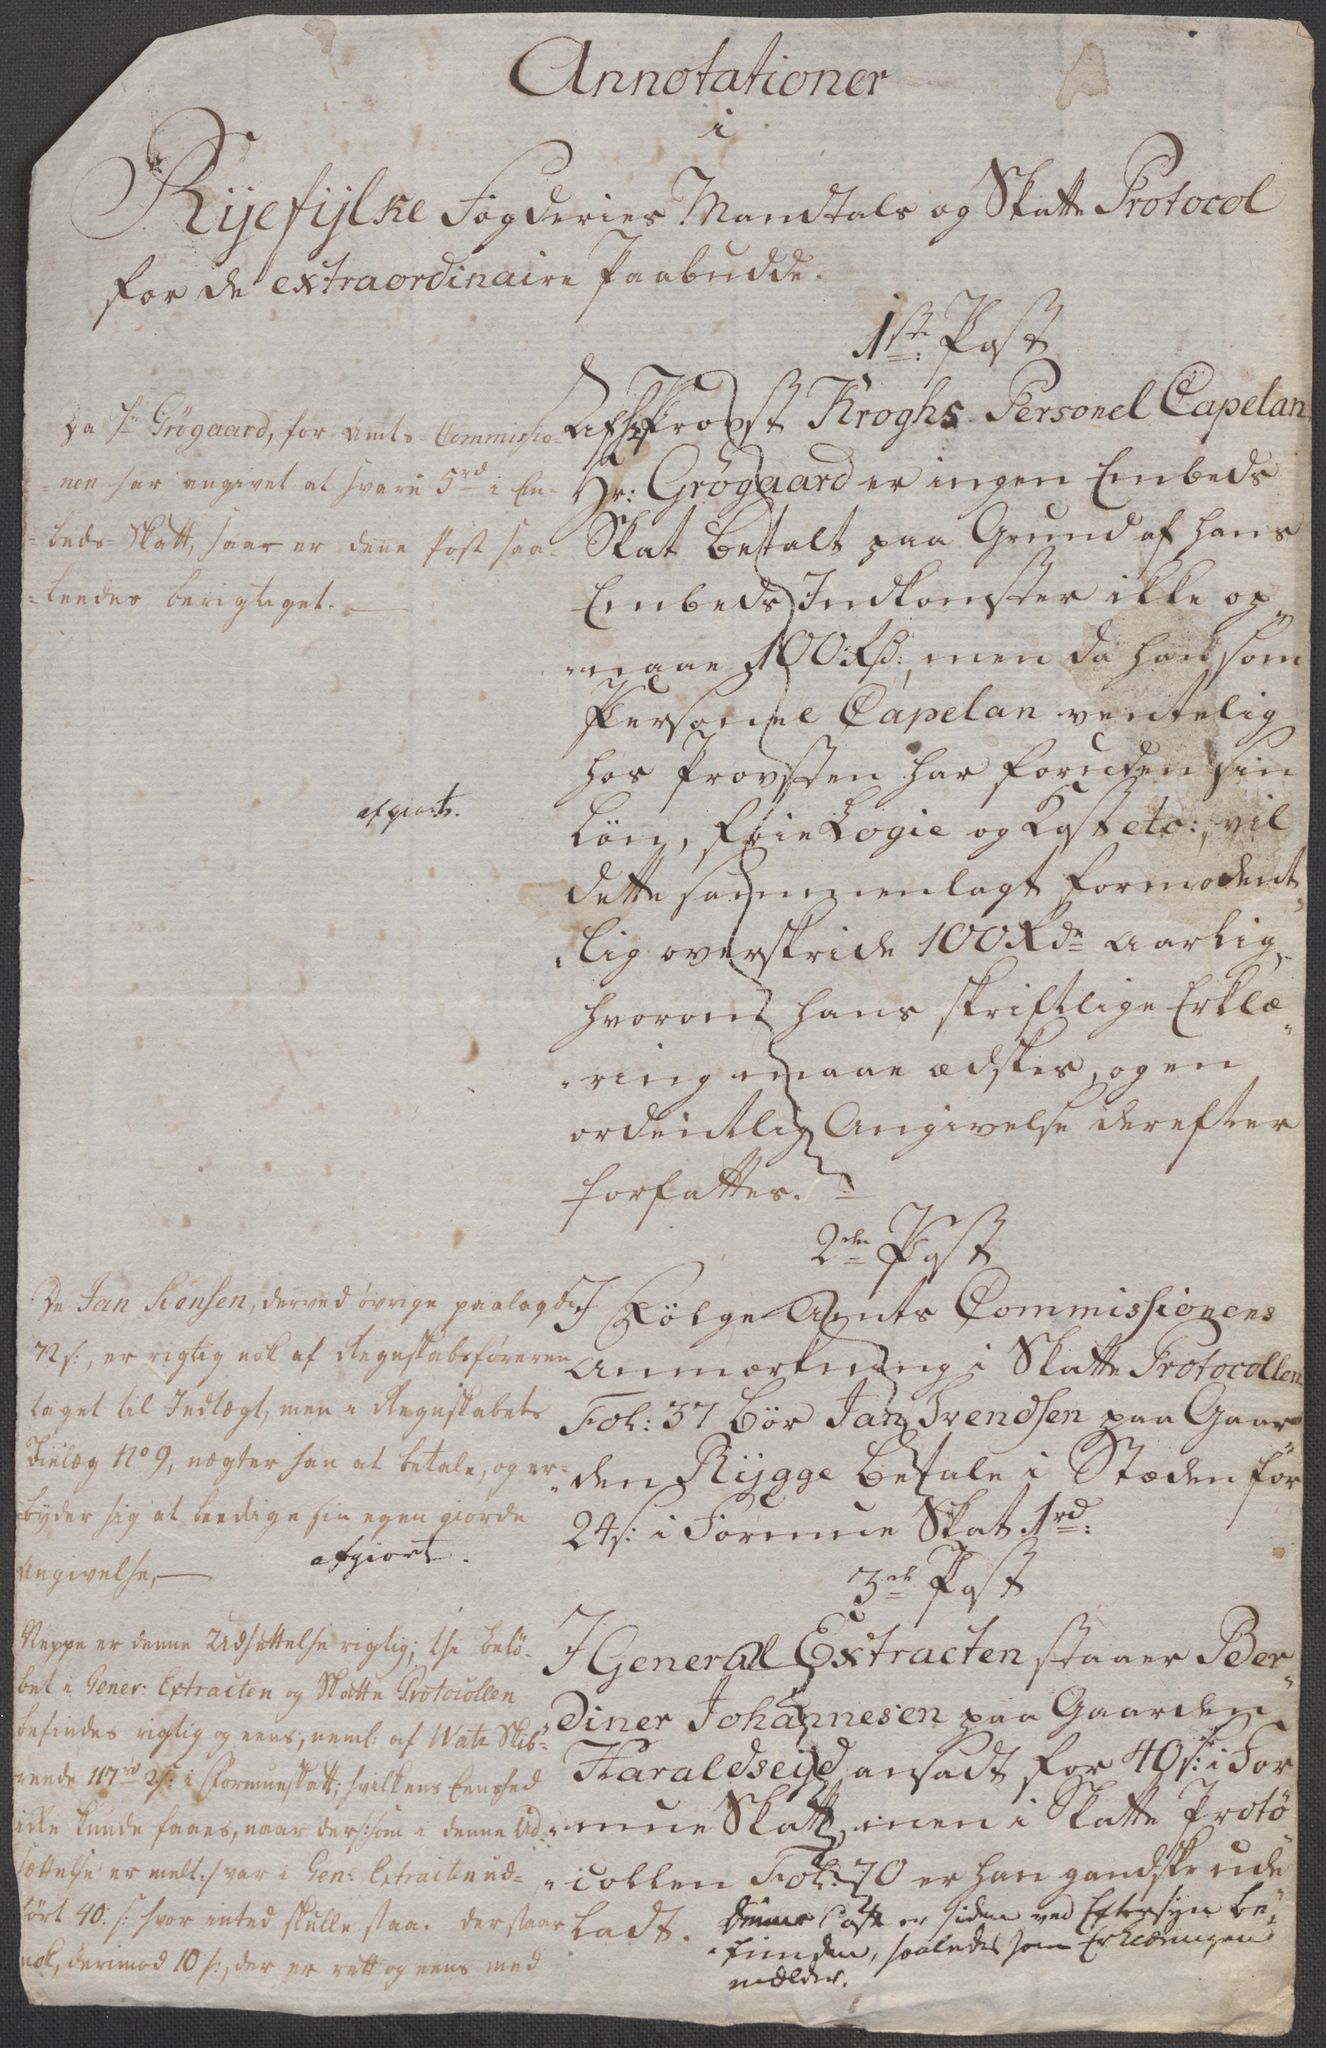 Annotationer
i
Ryefylke Fogderies Mandtals og Skatte Protocol
for de extraordinaire Paabudde.
1ste Post
Af Hr Provst Kroghs Personel Capelan
Hr: Grøgaard er ingen Embeds
Skat betalt paa Grund af hans
Embeds Indkomster ikke op-
-naae 100 Rd:, men da han som
Personel Capelan ventelig
hos Provsten har foruden sin
Løn, frie Logie og Kost etc:, vil
dette sammenlagt formodent-
-lig overskride 100 Rdr aarlig,
hvorom hans skriftlige Erklæ-
-ring maae ædskes, og en
ordentlig Angivelse derefter
forfattes.
Da Hr Grøgaard, for Amts-Commissio-
-nen har angivet at svare 5rd i Em-
-beds-Skatt, saa er denne Post saa-
-leedes berigtiget.
afgiort.
2den Post
I Følge Amts Commissionens
Anmærkning i Skatte Protocollen
Fol: 37 bør Jan Svendsen paa Gaar-
-den Rygge betale i Stæden for
24 s: i Formue Skat 1rd:
De Jan Svensen, derved øvrige paalagde
72 s:, er rigtig nok af Regnskabsføreren
taget til Indtægt, men i Regnskabets
Bielæg No 9, nægter han at betale, og er-
-byder sig at beedige sin egen giorde
Angivelse,
afgiort.
3die Post
I General Extracten staaer Ber-
diner Johannesen paa Gaarden
Haraldseyd ansadt for 40 s: i For-
mue Skatt, men i Skatte Proto-
-collen Fol: 70 er han gandske ude
ladt.
Denne Post er siden ved Eftersyn be-
-funden, saaledes som Erklæringen
melder.
Neppe er denne Udsættelse rigtig; thi belø-
bet i Gener: Extracten og Skatte Protocollen
befindes rigtig og eens, neml: af Wats Skib-
rende 117rd 2 s: i Formueskatt; hvilkens Eenshed
ikke kunde faaes, naar der som i denne Ud-
sættelse er melt, var i Gen: Extracten ud-
ført 40 s: hvor inted skulle staa. Der staar
nok, derimod 10 s:, der er rett og eens med